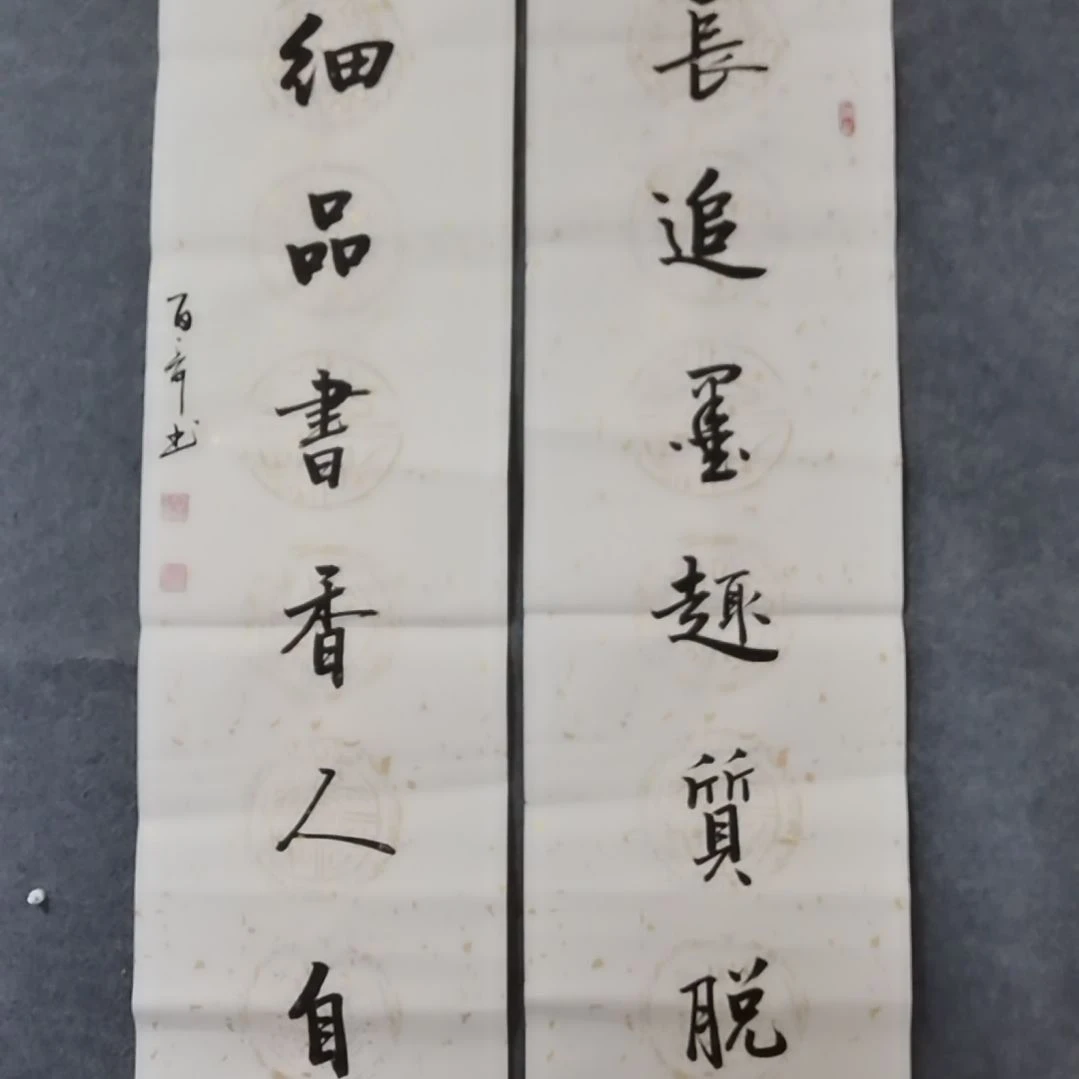 長追墨趣質脱
細品書香人自